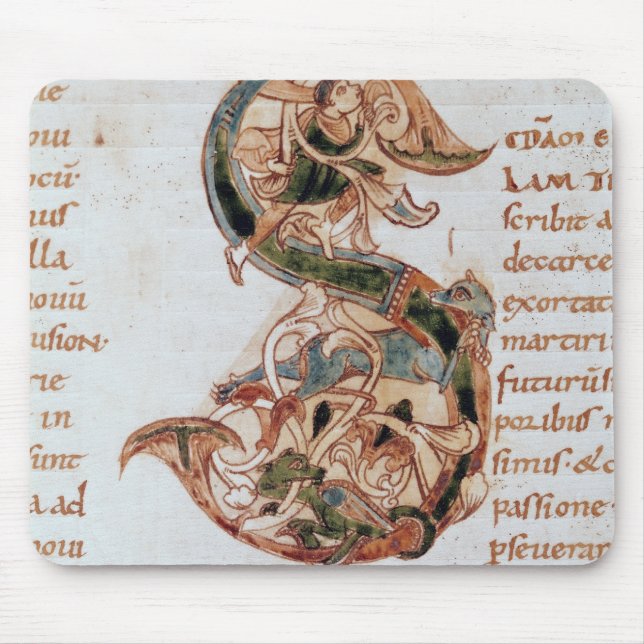 ie
ouı
ocū·
nus
lla
nouū
usion·
rie
in
sunt
a ad
noui
S
c̄dāoı e
lam ti
scribit a
decarce
exortat
martiri
futurūs
poribus n
simus· & c
passione
pseueran